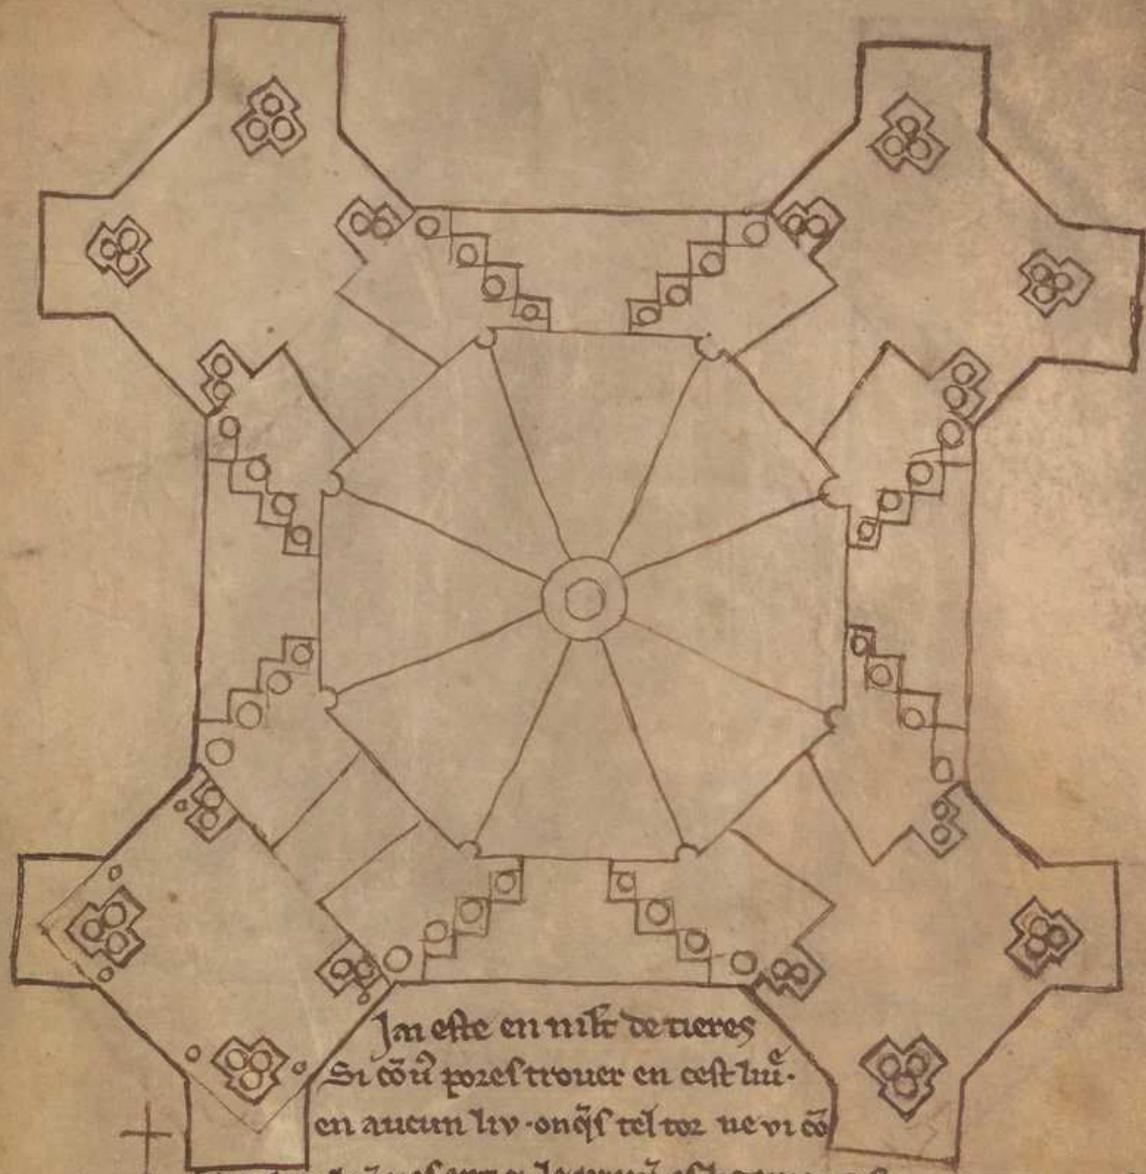 Jai este en mlt de tieres
Si cō uͦ porestrouer en cest liuͤ.
en aucun liv · onq̄s tel tor ne vi cō